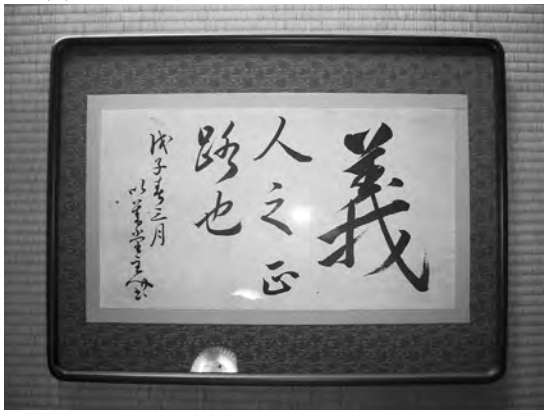 義
人之正
路也
戊子春三月